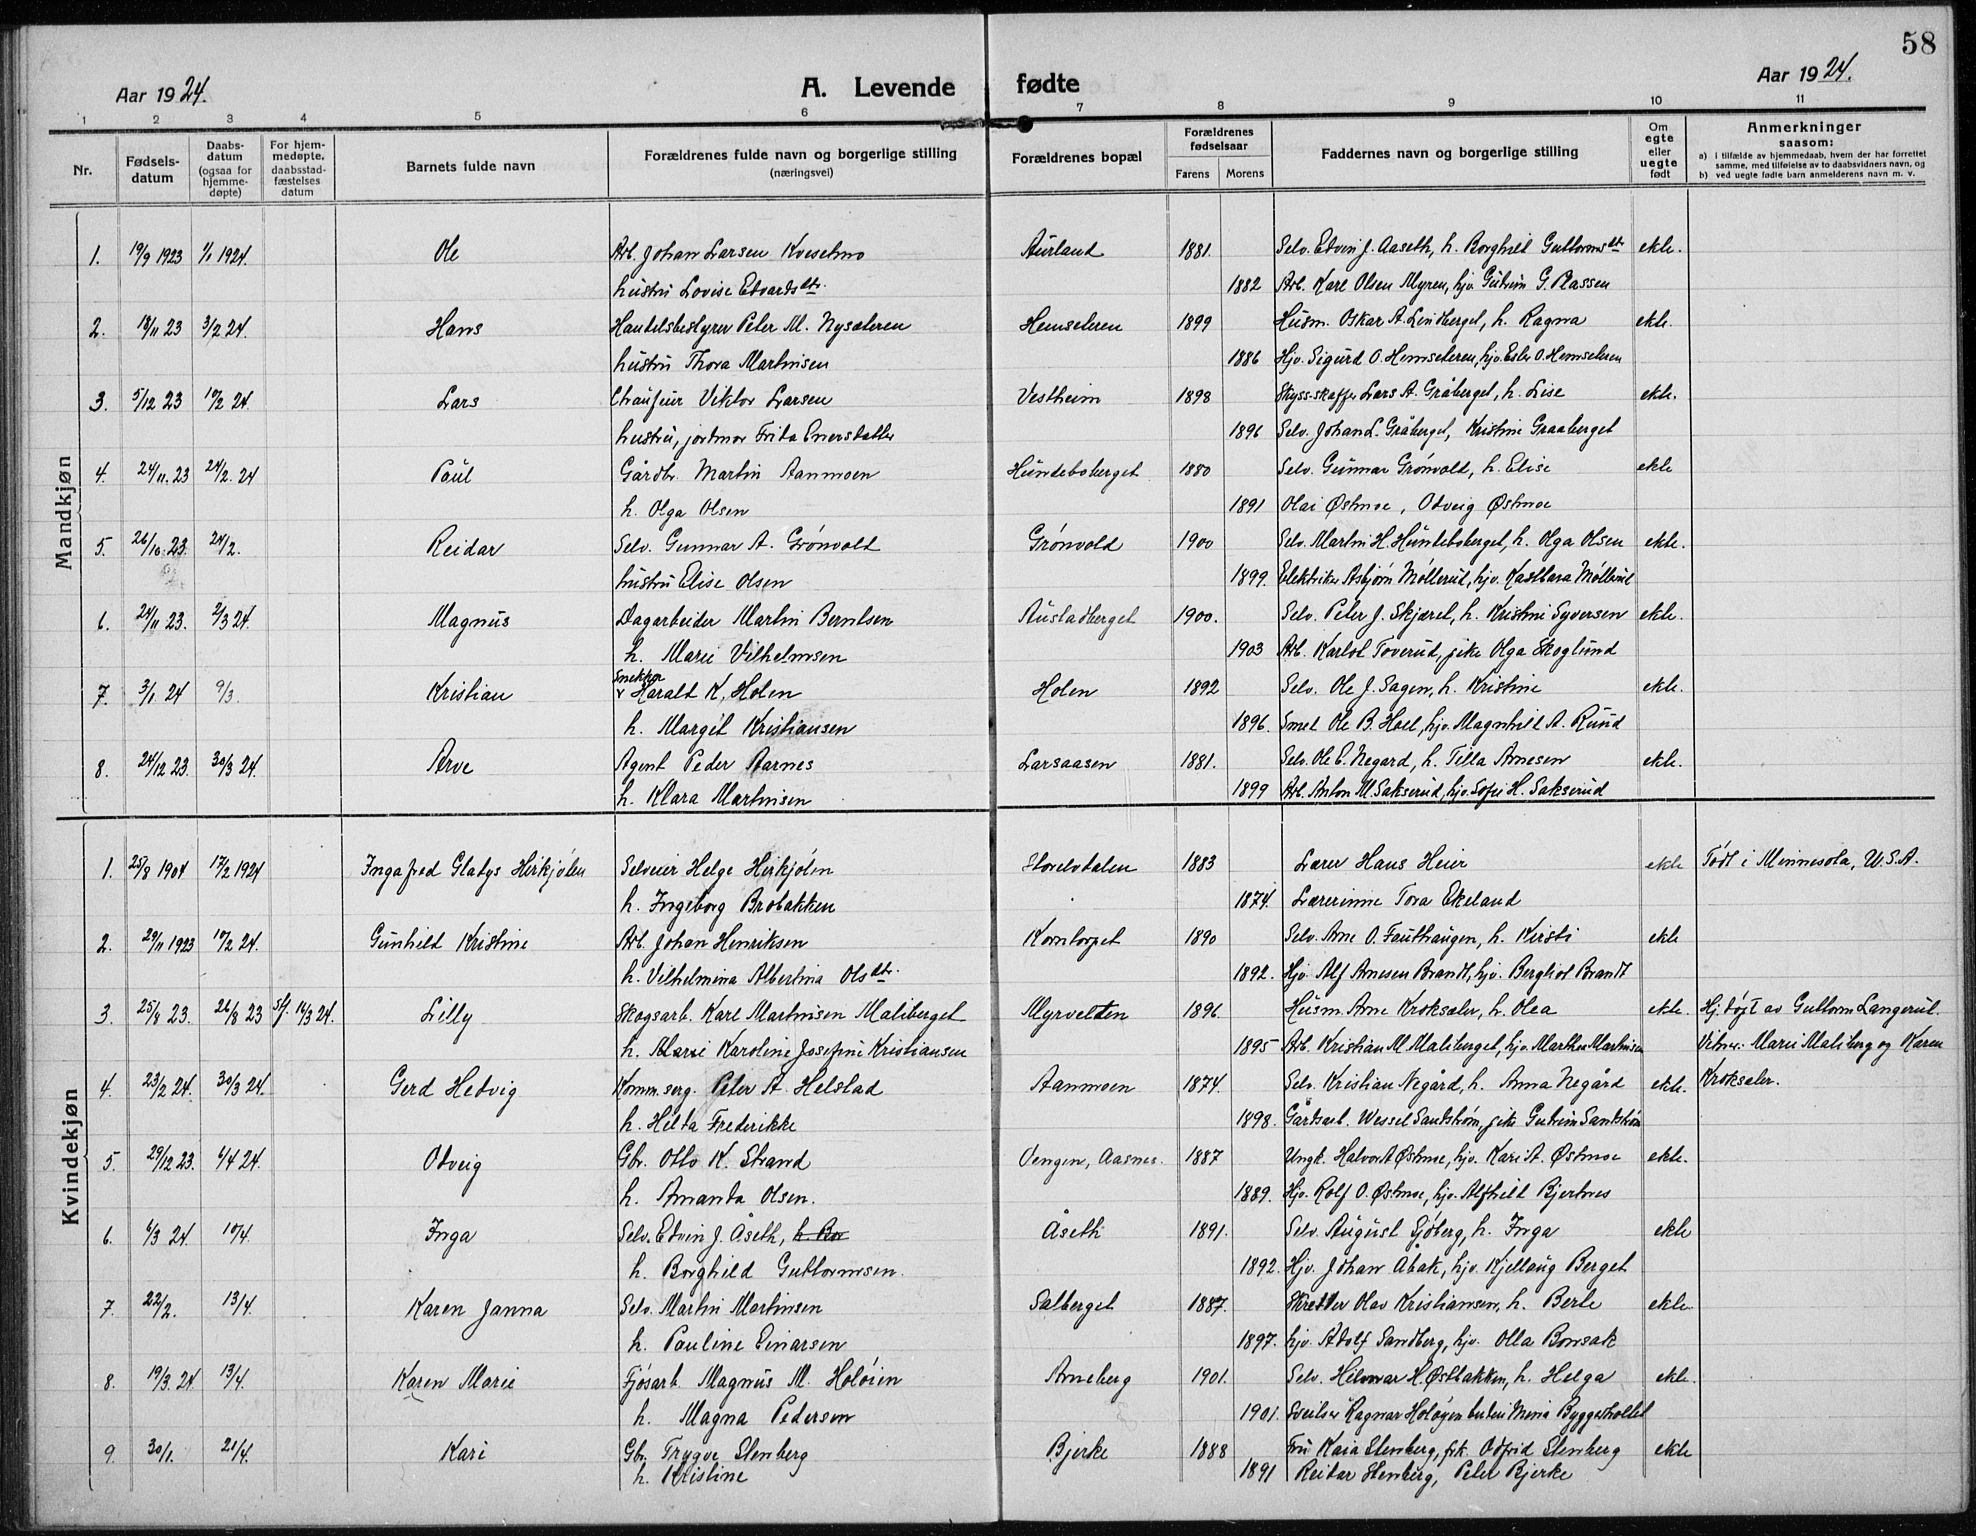 58
Aar 1924.
A. Levende fødte
Aar 1924.
1 2 3 4 5 6 7 8 9 10 11
Nr.
Fødsels-
datum
Daabs-
datum
(ogsaa for
hjemme-
døpte)
For hjem-
medøpte,
daabsstad-
fæstelses
datum
Barnets fulde navn
Forældrenes fulde navn og borgerlige stilling
(næringsvei)
Forældrenes bopæl
Forældrenes
fødselsaar
Farens Morens
Faddernes navn og borgerlige stilling
Om
egte
eller
uegte
født
Anmerkninger
saasom:
a) i tilfælde av hjemmedaab, hvem der har forrettet
samme, med tilføielse av to daabsvidners navn, og
b) ved uegte fødte barn anmelderens navn m. v.
Mandkjøn
1. 19/9 1923 1/1 1924. Ole Arb. Johan Larsen Kveselmo Aurland 1881. Selv. Edvin J. Aaseth, h. Borghild Guttormsdtr ekte.
hustru Lovise Edvardsdtr. 1882 Arb. Karl Olsen Myren, hjv. Gudrun G. Aassen
2. 18/11 23 3/2 24. Hans Handelsbestyrer Peter M. Nysæteren Hemseteren 1899 Husm. Oskar A. Lindberget, h. Ragna ekte.
hustru Thora Martinsen 1886 Hjv. Sigurd O. Hemseteren, hjv. Ester O. Hemseteren
3. 5/12 23 17/2 24. Lars Chauffeur Viktor Larsen Vestheim 1898 Skyss-skaffer Lars A. Gråberget, h. Lise ekte.
hustru, jordmor Frida Enersdatter 1896 Selv. Johan L. Gråberget, Kristine Graaberget
4. 24/11. 23 24/2. 24 Paul Gårdbr. Martin Aanmoen Hundebsberget 1880 Selv. Gunnar Grönvold, h. Elise ekte
h. Olga Olsen 1891 Olai Østmoe, Odveig Østmoe
5. 26/10 23. 24/2. Reidar Selv. Gunnar A. Grönvold Grönvold 1900 Selv. Martin H. Hundebsberget, h. Olga Olsen ekte.
hustru Elise Olsen 1899. Elektriker Asbjørn Möllerud, hjv. Kastbara Möllerud
6. 24/11 23. 2/3 24. Magnus Dagarbeider Martin Berntsen Austadberget 1900. Selv. Peter J. Skjæret, h. Kristine Syversen ekte.
h. Marie Vilhelmsen 1903 Arb. Karlot Toverud, pike Olga Skoglund
7. 3/1. 24 9/3. Kristian Snekker Harald K. Holen Holen 1892 Selv. Ole J. Sagen, h. Kristine ekte.
h. Margit Kristiansen 1896. Smed Ole B. Hoel, hjv. Magnhild A. Ruud
8. 24/12 23. 30/3 24. Arve Agent Peder Aarnes Larsaasen 1881. Selv. Ole E. Negard, h. Tilla Arnesen ekte.
h. Klara Martinsen 1899 Arb. Anton M. Sakserud, hjv. Sofie H. Sakserud
Kvindekjøn
1. 25/8 1904 17/2 1924 Ingafred Gladys Hirkjölen Selveier Helge Hirkjölen Storelvdalen 1883 Lærer Hans Heier ekte Födt i Minnesota, U.S.A.
h. Ingeborg Brobakken 1874. Lærerinne Tora Ekeland
2. 29/11 1923 17/2 24. Gunhild Kristine Arb. Johan Henriksen Korntorpet 1890 Selv. Arne O. Fauthaugen, h. Kirsti ekte
h. Vilhelmina Albertina Olsdtr. 1892. Hjv. Alf Arnesen Brandt, hjv. Bergliot Brandt
3. 25/8 23. 26/8 23 Stf. 16/3 24. Lilly Skogsarb. Karl Martinsen Maliberget Myrvelten 1896. Husm. Arne Kroksæter, h. Olea ekte. Hj.döpt av Guttorm Langerud.
h. Marie Karoline Josefine Kristiansen 1895 Arb. Kristian M. Maliberget, hjv. Marthea Martinsen Vitner: Marie Maliberg og Karen
Kroksæter.
4. 23/2 24. 30/3 24. Gerd Hedvig Komm.serg. Peter A. Helstad Aanmoen 1874. Selv. Kristian Negård, h. Anna Negård ekte.
h. Hilda Frederikke 1898. Gårdsarb. Wessel Sandström, pike Gudrun Sandström
5. 29/12 23. 6/4 24. Odveig Gbr. Otto K. Strand Vengen, Aasnes. 1887 Ungk. Halvor A. Østmoe, hjv. Kari A. Østmoe ekte.
h. Amanda Olsen. 1889. Hjv. Rolf O. Østmoe, hjv. Alfhild Bjertnes
6. 6/3 24. 10/4. Inga Selv. Edvin J. Åseth, h. Bor Åseth 1891. Selv. August Sjöberg, h. Inga ekte
h. Borghild Guttormsen. 1892. Hjv. Johan Åbak, hjv. Kjellaug Berget
7. 22/2. 13/4. Karen Janna Selv. Martin Martinsen Salberget 1887. Skredder Olav Kristiansen, h. Berte ekte.
h. Pauline Einarsen 1897. hjv. Adolf Sandberg, hjv. Olla Bonsak
8. 19/3. 24 13/4. Karen Marie Fjösarb. Magnus M. Holöien Arneberg 1901. Selv. Hilmar H. Østbakken, h. Helga ekte.
h. Magna Pedersen 1901. Sveitser Ragnar Holöyen budeie Maria Byggestollet
9. 30/1. 21/4. Kari Gbr. Trygve Stenberg Bjerke 1888 Fru Kaia Stenberg, frk. Odfrid Stenberg ekte
h. Kristine 1891 Reidar Stenberg, Peter Bjerke